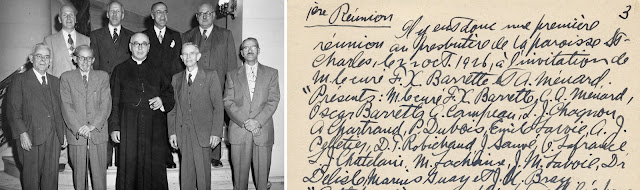 3
1ère Réunion
Il y eut donc une première
réunion au presbytère de la paroisse St-
Charles, le 2 oct. 1926, à l'invitation de
M. le curé F.X. Barrette & A. Ménard.
"Présents: M. le curé F.X. Barrette, G.A. Ménard,
Oscar Barrette, G. Campeau, L. J. Chagnon,
A Chartrand, P. Dubois, Emile Lavoie, A. J.
Pelletier, D. T. Robichaud, J. Sauvé, O. Lafrance
L. J. Chatelain, M. Lachaine, J. M. Lavoie, Dr
Delisle, Marius Guay et J. H. Bray